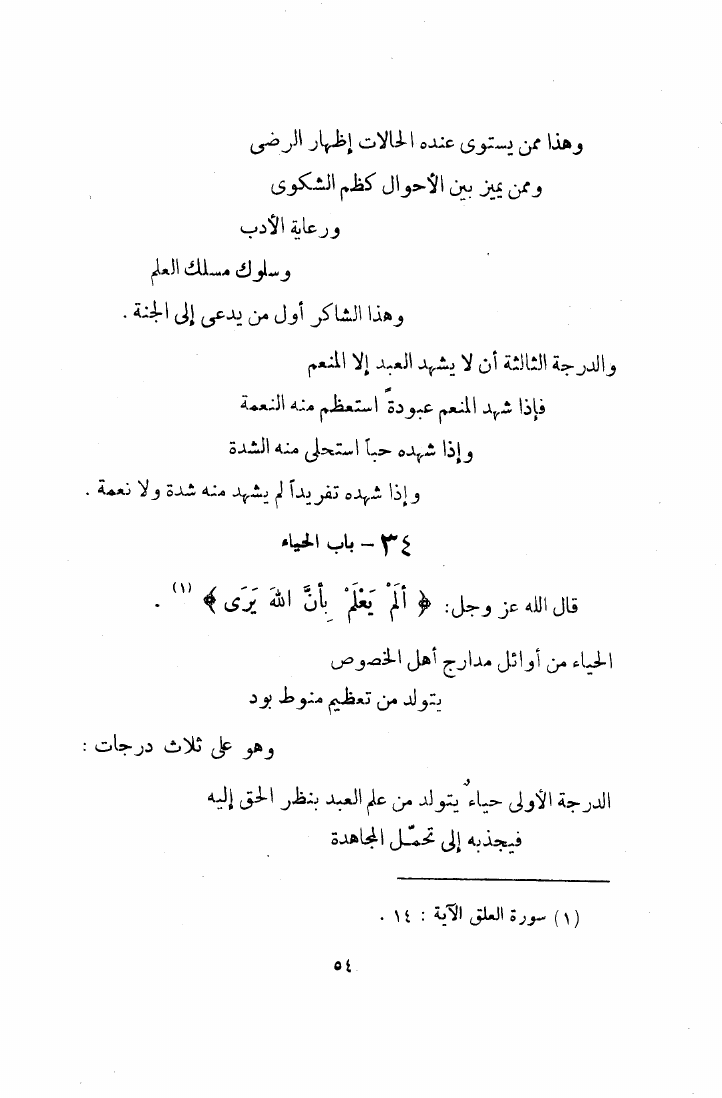 وهذا ممن يستوى عنده الحالات إظهار الرضى
وممن يميز بين الأحوال كظم الشكوى
ورعاية الأدب
وسلوك مسلك العلم
وهذا الشاكر أول من يدعى إلى الجنة .
والدرجة الثالثة أن لا يشهد العبد إلا المنعم
فإذا شهد المنعم عبودةً استعظم منه النعمة
وإذا شهده حباً استحلى منه الشدة
وإذا شهده تفريداً لم يشهد منه شدة ولا نعمة .
٣٤ - باب الحياء
قال الله عز وجل: ﴿ أَلَمْ يَعْلَمْ بِأَنَّ اللهَ يَرَى ﴾ (١) .
الحياء من أوائل مدارج أهل الخصوص
يتولد من تعظيم منوط بود
وهو على ثلاث درجات :
الدرجة الأولى حياءٌ يتولد من علم العبد بنظر الحق إليه
فيجذبه إلى تحمّل المجاهدة
(١) سورة العلق الآية : ١٤ .
٥٤